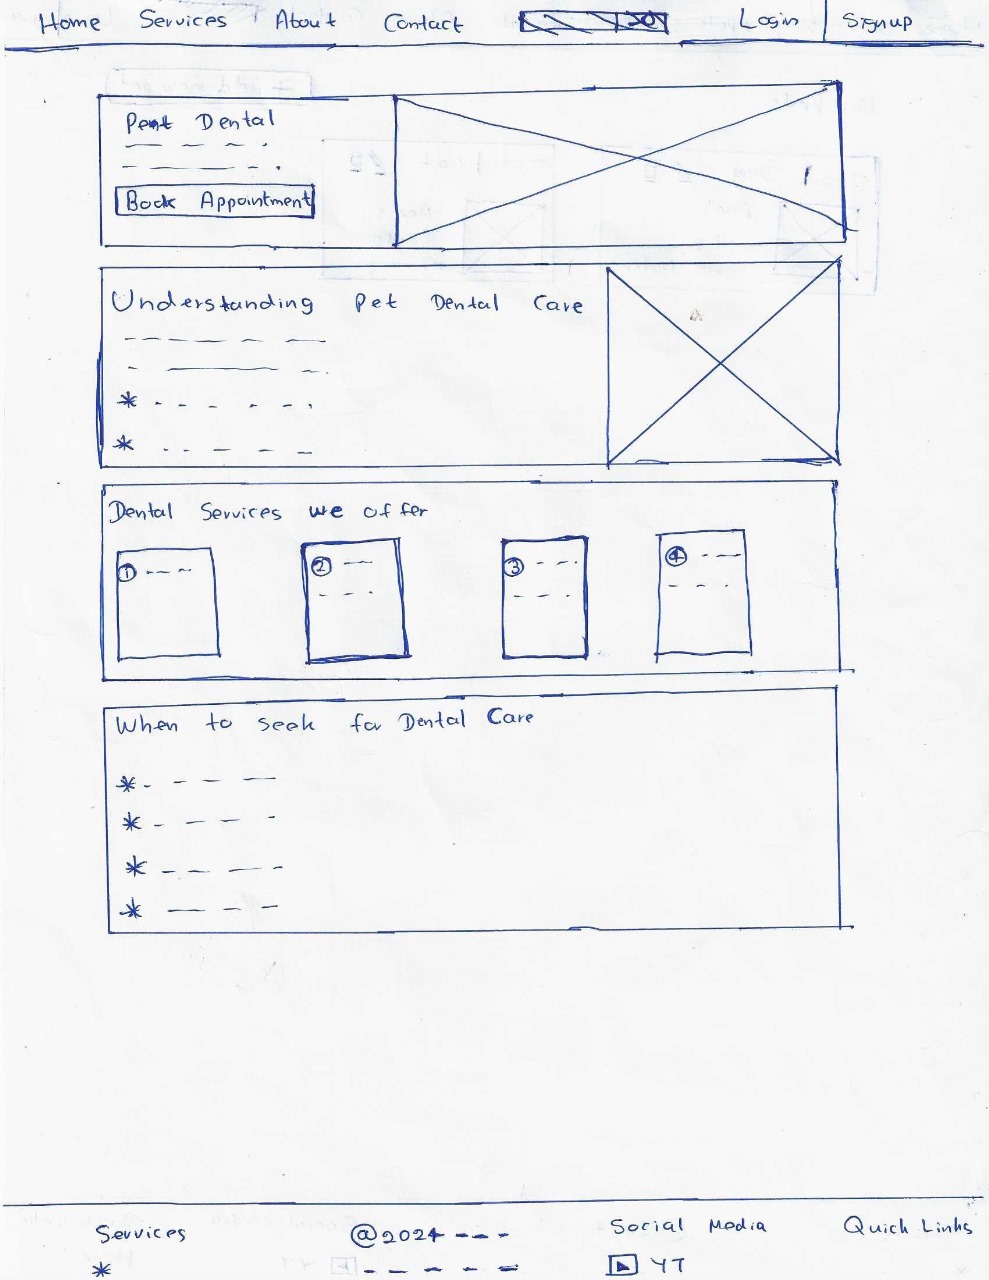 Home Services About Contact Login Signup
Dental
Book Appointment
Understanding Pet Dental Care
Dental Services we offer
1
2
3
4
When to seek for Dental Care
Services @2024 Social Media Quick Links
YT